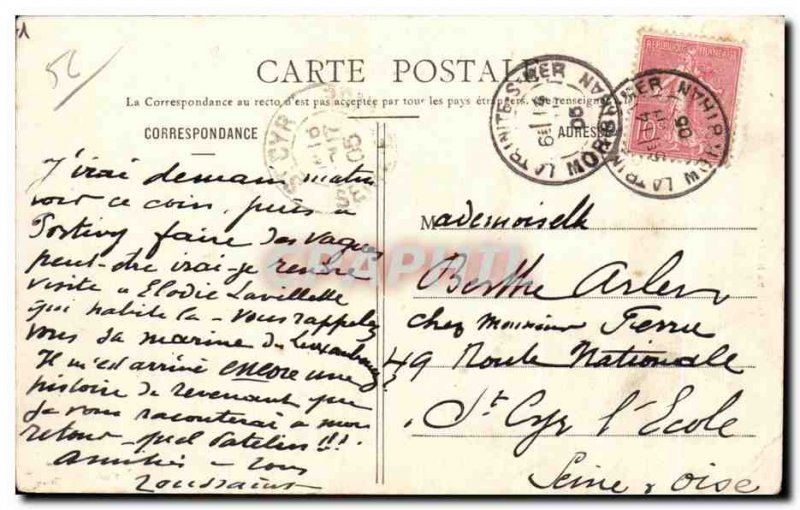 52
CARTE POSTALE
La Correspondance au recto n'est pas acceptée par tous les pays étrangers. (Se renseigner
CORRESPONDANCE
ADRESSE
REPUBLIQUE FRANÇAISE
10
LA TRINITE-S-MER
MORBIHAN
05
ST CYR
05
J'irai demain matin
voir ce coin, puis à
Portivy faire des vagues
peut-être irai-je rendre
visite à Elodie Lavillette
qui habite là - vous rappelez
vous sa marine du Luxembourg?
Il m'est arrivé encore une
histoire de revenant que
je vous raconterai à mon
retour - quel Patelin!!!
Amitiés - tous
Toussaint
Mademoiselle
Berthe
chez Monsieur Ferru
49 Route Nationale
St Cyr l'Ecole
Seine & Oise
CPAPHIL